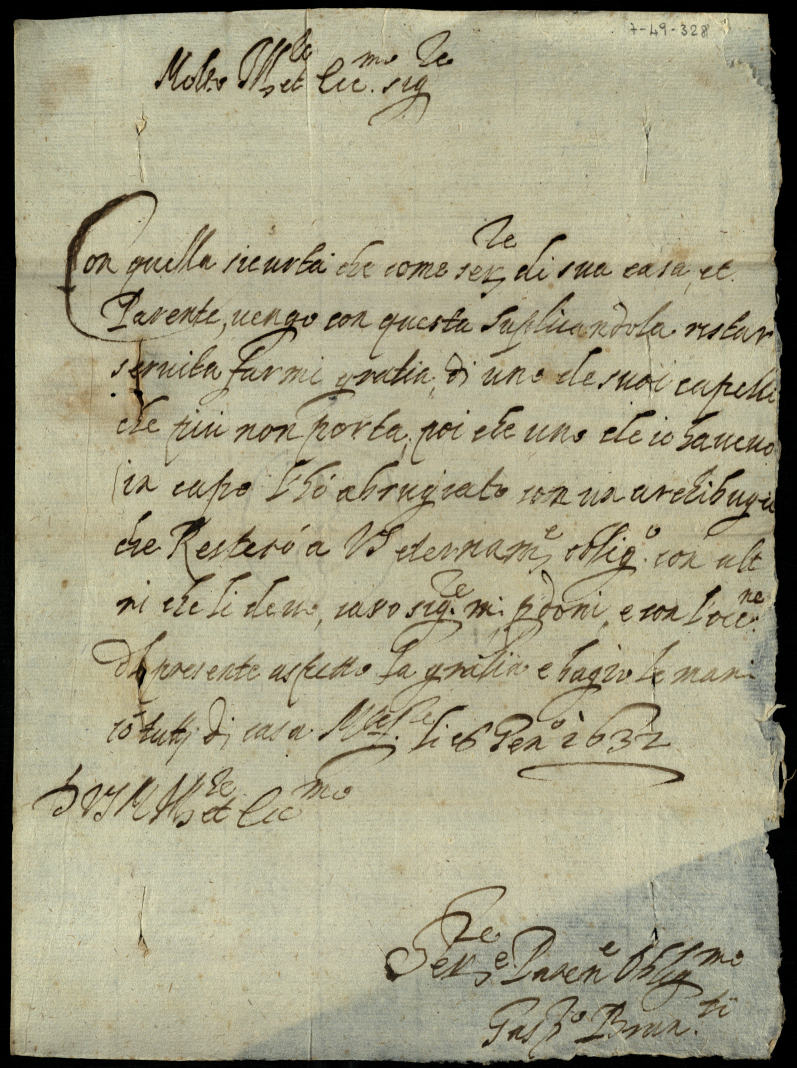 7-49-328
Molto Ill.re et Ecc.mo sig.re
Con quella sicurtà che come ser.re di sua casa, et
Parente, vengo con questa suplicandola restar
servita farmi gratia, di uno de suoi capelli
che più non porta, poi che uno che io havevo
in capo l'hò abrugiato con un archibugio
che Resterò a VS eternam.e oblig.o con alt
ri che li devo, caro sig.re mi pdoni, e con l'occ.ne
del presente aspetto la gratia e bagio le mani
cò tutti di casa li 6 Gen.o 1632
D VS M Ill.re et Ecc.mo
Ser.re e Paren.e Oblig.mo
Gasp.o Brun.ti